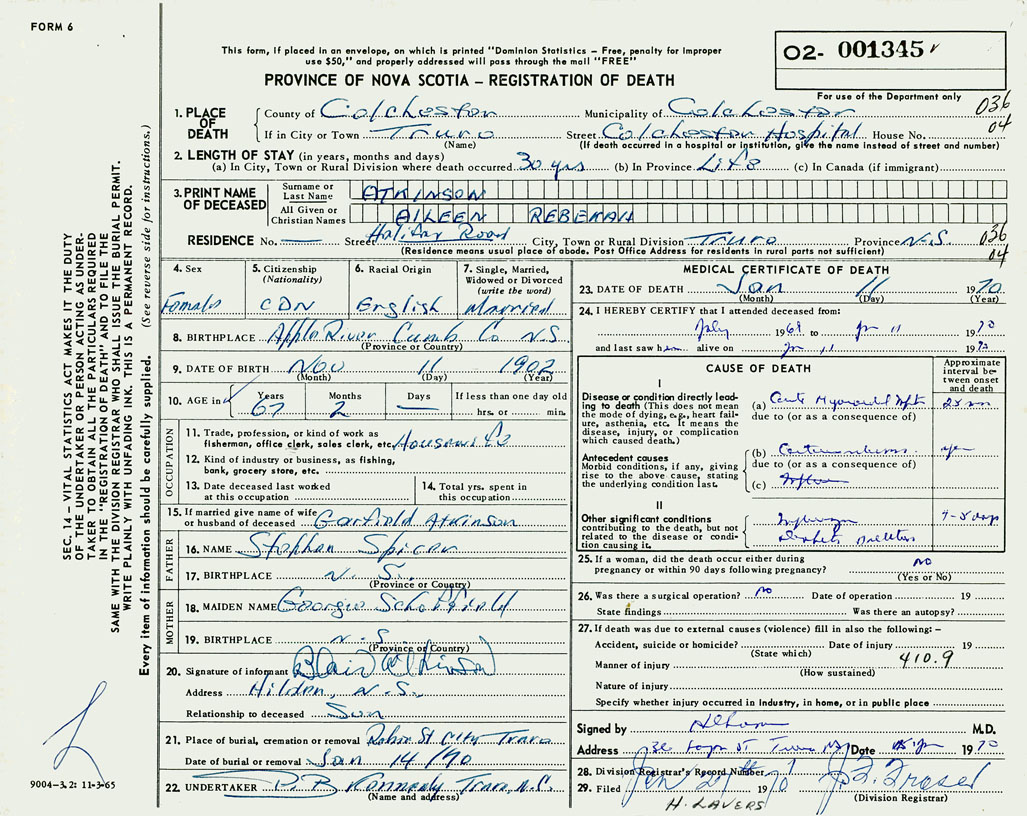 FORM 6
This form, if placed in an envelope, on which is printed "Dominion Statistics – Free, penalty for improper
use $50," and properly addressed will pass through the mail "FREE"
PROVINCE OF NOVA SCOTIA – REGISTRATION OF DEATH
02- 001345
For use of the Department only
036
04
1. PLACE OF DEATH
County of Colchester Municipality of Colchester
If in City or Town Truro Street Colchester Hospital House No.
(Name) (If death occurred in a hospital or institution, give the name instead of street and number)
2. LENGTH OF STAY (in years, months and days)
(a) In City, Town or Rural Division where death occurred 30 yrs (b) In Province Life (c) In Canada (if immigrant)
3. PRINT NAME OF DECEASED
Surname or Last Name ATKINSON
All Given or Christian Names AILEEN REBEKAH
RESIDENCE No. — Street Halifax Road City, Town or Rural Division Truro Province N.S. 036
(Residence means usual place of abode. Post Office Address for residents in rural parts not sufficient) 04
4. Sex Female
5. Citizenship (Nationality) CDN
6. Racial Origin English
7. Single, Married, Widowed or Divorced (write the word) Married
8. BIRTHPLACE Apple River Cumb Co N.S.
(Province or Country)
9. DATE OF BIRTH Nov 11 1902
(Month) (Day) (Year)
10. AGE in Years 67 Months 2 Days — If less than one day old
hrs. or min.
OCCUPATION
11. Trade, profession, or kind of work as
fisherman, office clerk, sales clerk, etc. Housewife
12. Kind of industry or business, as fishing,
bank, grocery store, etc.
13. Date deceased last worked
at this occupation
14. Total yrs. spent in
this occupation
15. If married give name of wife
or husband of deceased Garfield Atkinson
FATHER
16. NAME Stephen Spicer
17. BIRTHPLACE N.S.
(Province or Country)
MOTHER
18. MAIDEN NAME Georgie
19. BIRTHPLACE N.S
(Province or Country)
20. Signature of informant Blair Atkinson
Address Hilden, N.S.
Relationship to deceased Son
21. Place of burial, cremation or removal Robie St City Truro
Date of burial or removal Jan 14/70
22. UNDERTAKER Kennedy Truro, N.S.
(Name and address)
MEDICAL CERTIFICATE OF DEATH
23. DATE OF DEATH Jan 11 1970
(Month) (Day) (Year)
24. I HEREBY CERTIFY that I attended deceased from:
July 196 to Jan 11 1970
and last saw her alive on Jan 11 1970
CAUSE OF DEATH
Approximate interval between onset and death
I
Disease or condition directly leading to death (This does not mean the mode of dying, e.g., heart failure, asthenia, etc. It means the disease, injury, or complication which caused death.)
(a)
due to (or as a consequence of)
Antecedent causes
Morbid conditions, if any, giving rise to the above cause, stating the underlying condition last.
(b)
due to (or as a consequence of)
(c)
II
Other significant conditions
contributing to the death, but not related to the disease or condition causing it.
4-5 days
Diabetes Mellitus
25. If a woman, did the death occur either during
pregnancy or within 90 days following pregnancy? NO
(Yes or No)
26. Was there a surgical operation? NO Date of operation 19
State findings Was there an autopsy?
27. If death was due to external causes (violence) fill in also the following: –
Accident, suicide or homicide? Date of injury 19
(State which) 410.9
Manner of injury
(How sustained)
Nature of injury
Specify whether injury occurred in industry, in home, or in public place
Signed by M.D.
Address St Truro NS Date 1970
28. Division Registrar's Record Number
29. Filed Jan 29th 1970 Fraser
(Division Registrar)
H. LAVERS
SEC. 14 – VITAL STATISTICS ACT MAKES IT THE DUTY
OF THE UNDERTAKER OR PERSON ACTING AS UNDER-
TAKER TO OBTAIN ALL THE PARTICULARS REQUIRED
IN THE "REGISTRATION OF DEATH" AND TO FILE THE
SAME WITH THE DIVISION REGISTRAR WHO SHALL ISSUE THE BURIAL PERMIT.
WRITE PLAINLY WITH UNFADING INK. THIS IS A PERMANENT RECORD.
Every item of information should be carefully supplied. (See reverse side for instructions.)
9004–3.2: 11-3-65